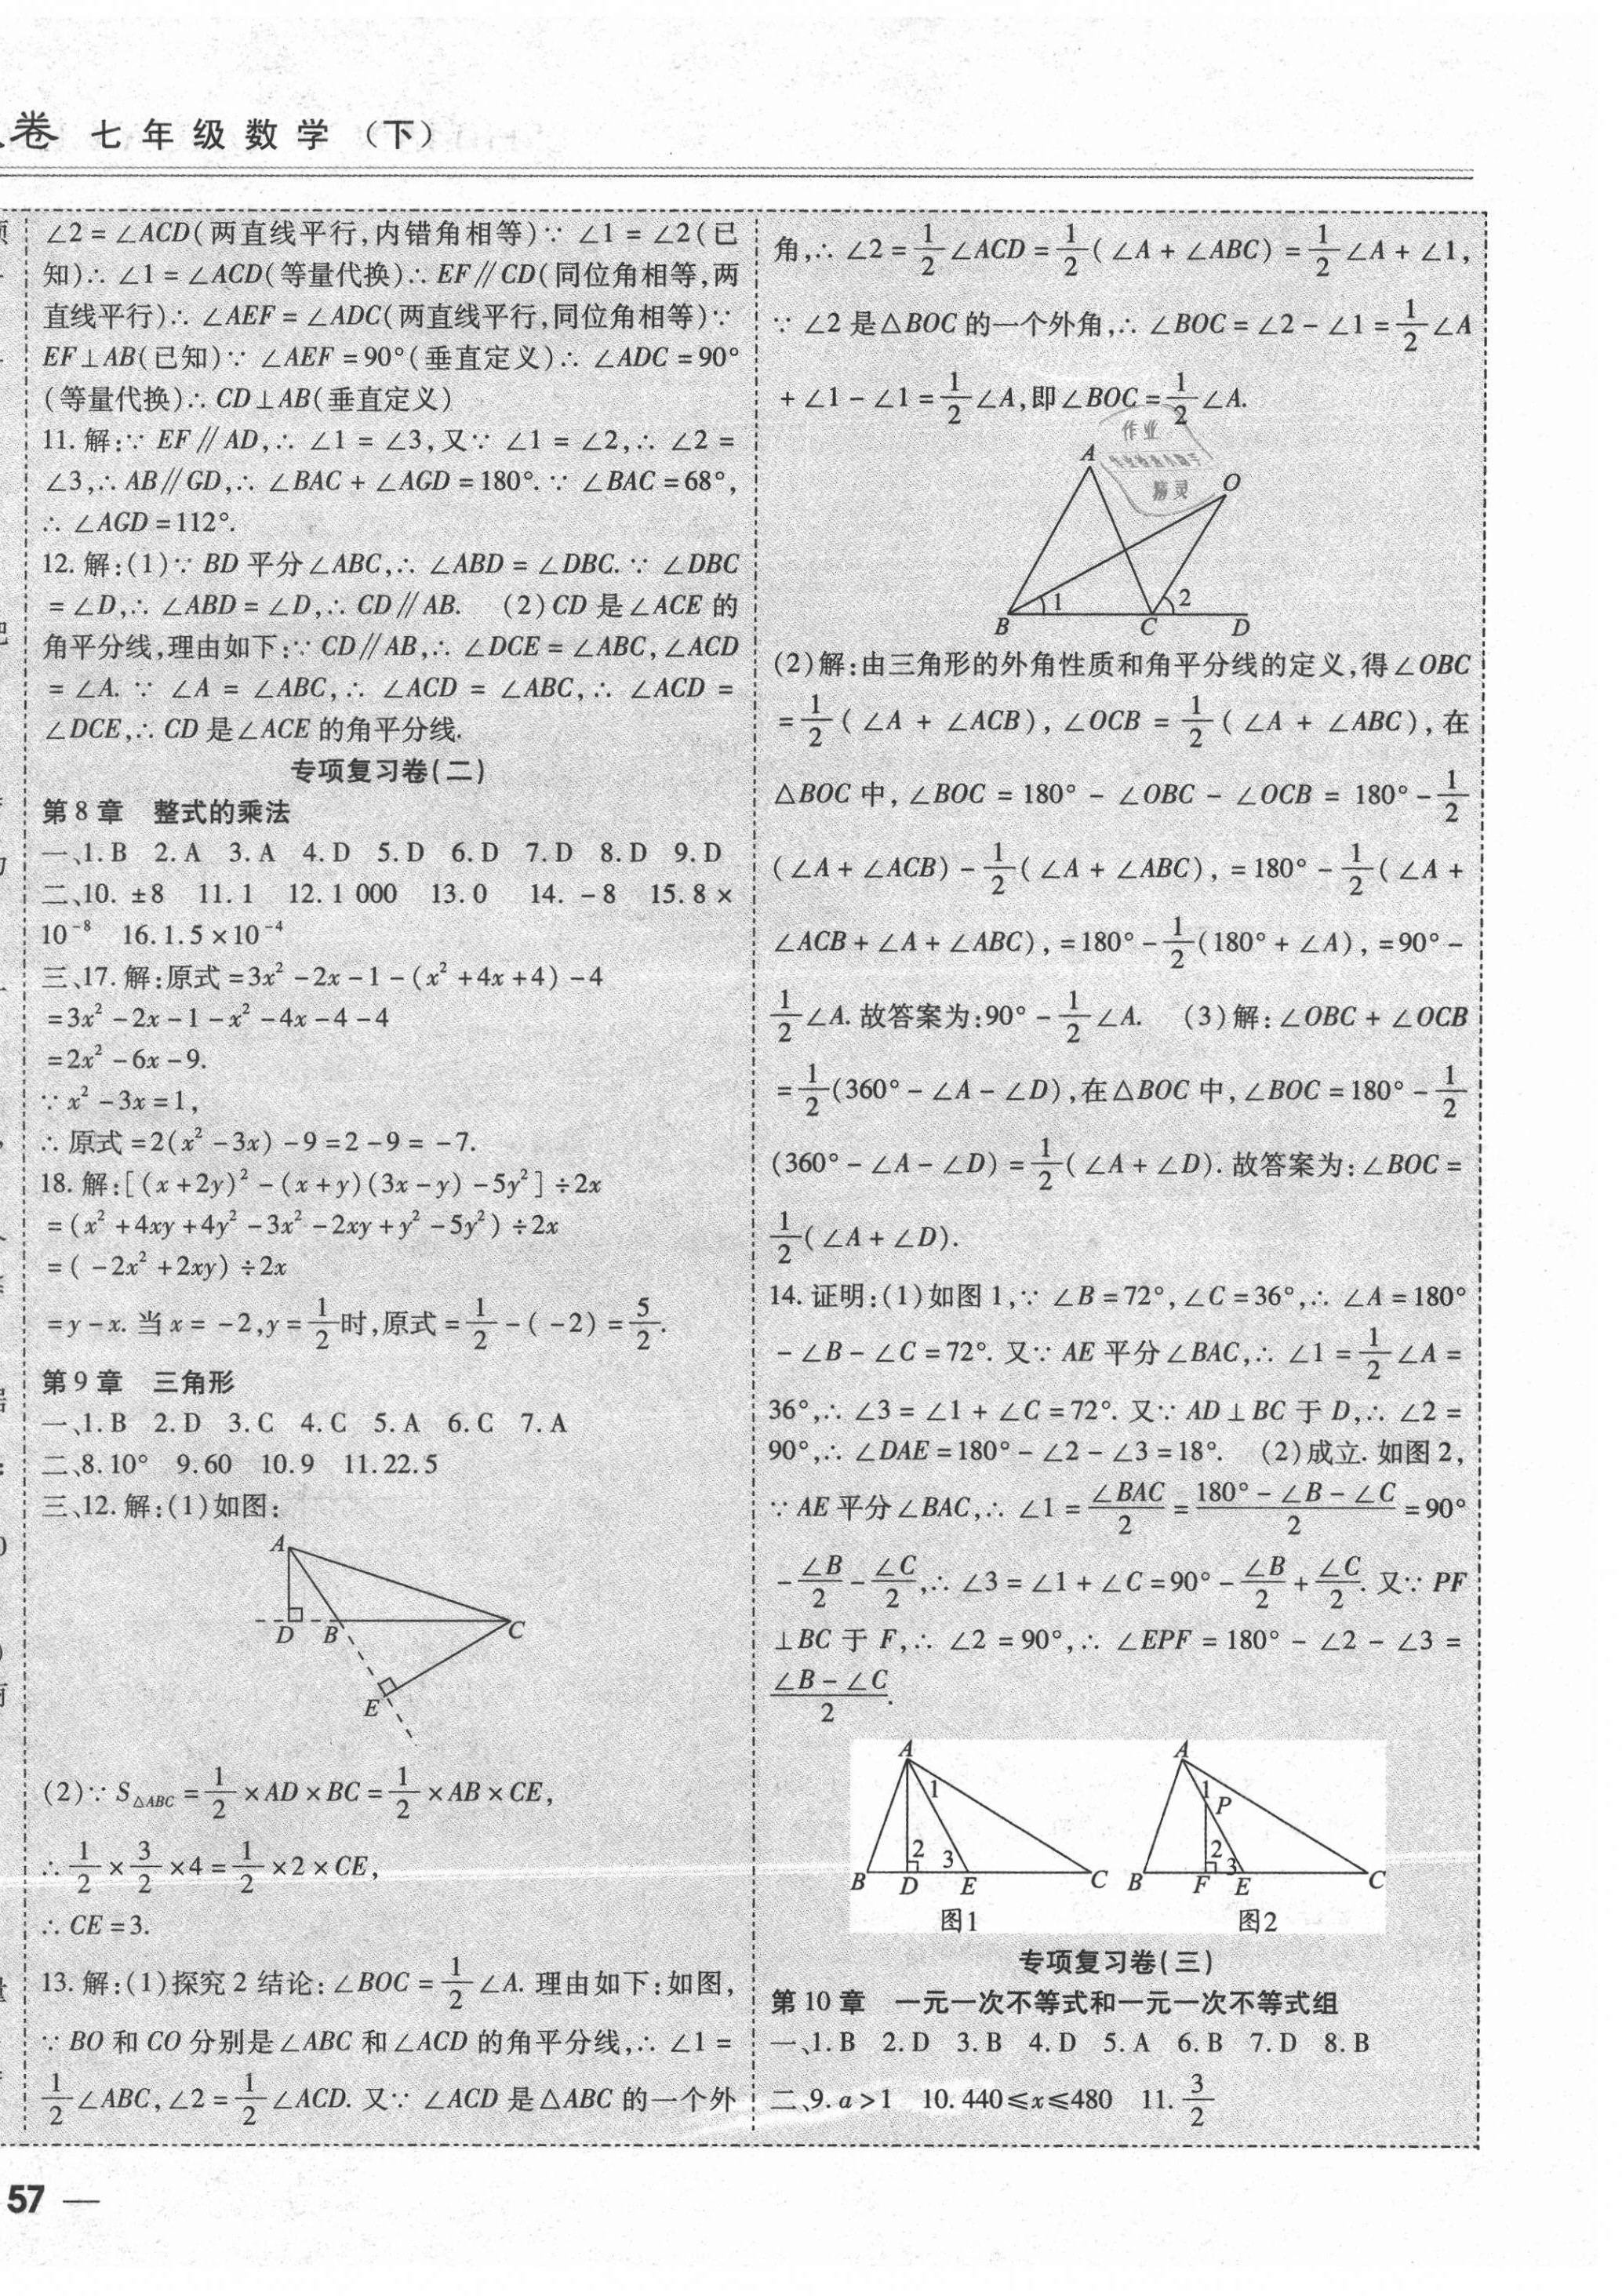 卷 七年级数学（下）
∠2=∠ACD(两直线平行,内错角相等)∵ ∠1=∠2(已
知)∴ ∠1=∠ACD(等量代换)∴ EF∥CD(同位角相等,两
直线平行)∴ ∠AEF=∠ADC(两直线平行,同位角相等)∵
EF⊥AB(已知)∵ ∠AEF=90°(垂直定义)∴ ∠ADC=90°
(等量代换)∴ CD⊥AB(垂直定义)
11. 解:∵ EF∥AD,∴ ∠1=∠3,又∵ ∠1=∠2,∴ ∠2=
∠3,∴ AB∥GD,∴ ∠BAC+∠AGD=180°. ∵ ∠BAC=68°,
∴ ∠AGD=112°.
12. 解:(1)∵ BD 平分∠ABC,∴ ∠ABD=∠DBC. ∵ ∠DBC
=∠D,∴ ∠ABD=∠D,∴ CD∥AB. (2)CD 是∠ACE 的
角平分线,理由如下:∵ CD∥AB,∴ ∠DCE=∠ABC,∠ACD
=∠A. ∵ ∠A=∠ABC,∴ ∠ACD=∠ABC,∴ ∠ACD=
∠DCE,∴ CD 是∠ACE 的角平分线.
专项复习卷(二)
第8章 整式的乘法
一、1. B 2. A 3. A 4. D 5. D 6. D 7. D 8. D 9. D
二、10. ±8 11. 1 12. 1 000 13. 0 14. -8 15. 8×
10⁻⁸ 16. 1.5×10⁻⁴
三、17. 解:原式=3x²-2x-1-(x²+4x+4)-4
=3x²-2x-1-x²-4x-4-4
=2x²-6x-9.
∵ x²-3x=1,
∴ 原式=2(x²-3x)-9=2-9=-7.
18. 解:[(x+2y)²-(x+y)(3x-y)-5y²]÷2x
=(x²+4xy+4y²-3x²-2xy+y²-5y²)÷2x
=(-2x²+2xy)÷2x
=y-x. 当x=-2,y=1/2时,原式=1/2-(-2)=5/2.
第9章 三角形
一、1. B 2. D 3. C 4. C 5. A 6. C 7. A
二、8. 10° 9. 60 10. 9 11. 22.5
三、12. 解:(1)如图:
A
D B C
E
(2)∵ S△ABC=1/2×AD×BC=1/2×AB×CE,
∴ 1/2×3/2×4=1/2×2×CE,
∴ CE=3.
13. 解:(1)探究2结论:∠BOC=1/2∠A. 理由如下:如图,
∵ BO 和 CO 分别是∠ABC 和∠ACD 的角平分线,∴ ∠1=
1/2∠ABC,∠2=1/2∠ACD. 又∵ ∠ACD 是△ABC 的一个外
57 —
角,∴ ∠2=1/2∠ACD=1/2(∠A+∠ABC)=1/2∠A+∠1,
∵ ∠2 是△BOC 的一个外角,∴ ∠BOC=∠2-∠1=1/2∠A
+∠1-∠1=1/2∠A,即∠BOC=1/2∠A.
作业
精灵
A O
1 2
B C D
(2)解:由三角形的外角性质和角平分线的定义,得∠OBC
=1/2(∠A+∠ACB),∠OCB=1/2(∠A+∠ABC),在
△BOC 中,∠BOC=180°-∠OBC-∠OCB=180°-1/2
(∠A+∠ACB)-1/2(∠A+∠ABC),=180°-1/2(∠A+
∠ACB+∠A+∠ABC),=180°-1/2(180°+∠A),=90°-
1/2∠A. 故答案为:90°-1/2∠A. (3)解:∠OBC+∠OCB
=1/2(360°-∠A-∠D),在△BOC 中,∠BOC=180°-1/2
(360°-∠A-∠D)=1/2(∠A+∠D). 故答案为:∠BOC=
1/2(∠A+∠D).
14. 证明:(1)如图1,∵ ∠B=72°,∠C=36°,∴ ∠A=180°
-∠B-∠C=72°. 又∵ AE 平分∠BAC,∴ ∠1=1/2∠A=
36°,∴ ∠3=∠1+∠C=72°. 又∵ AD⊥BC 于 D,∴ ∠2=
90°,∴ ∠DAE=180°-∠2-∠3=18°. (2)成立. 如图2,
∵ AE 平分∠BAC,∴ ∠1=∠BAC/2=(180°-∠B-∠C)/2=90°
-∠B/2-∠C/2,∴ ∠3=∠1+∠C=90°-∠B/2+∠C/2. 又∵ PF
⊥BC 于 F,∴ ∠2=90°,∴ ∠EPF=180°-∠2-∠3=
(∠B-∠C)/2.
A
1
2 3
B D E C
图1
A
1 P
2 3
B F E C
图2
专项复习卷(三)
第10章 一元一次不等式和一元一次不等式组
一、1. B 2. D 3. B 4. D 5. A 6. B 7. D 8. B
二、9. a>1 10. 440≤x≤480 11. 3/2